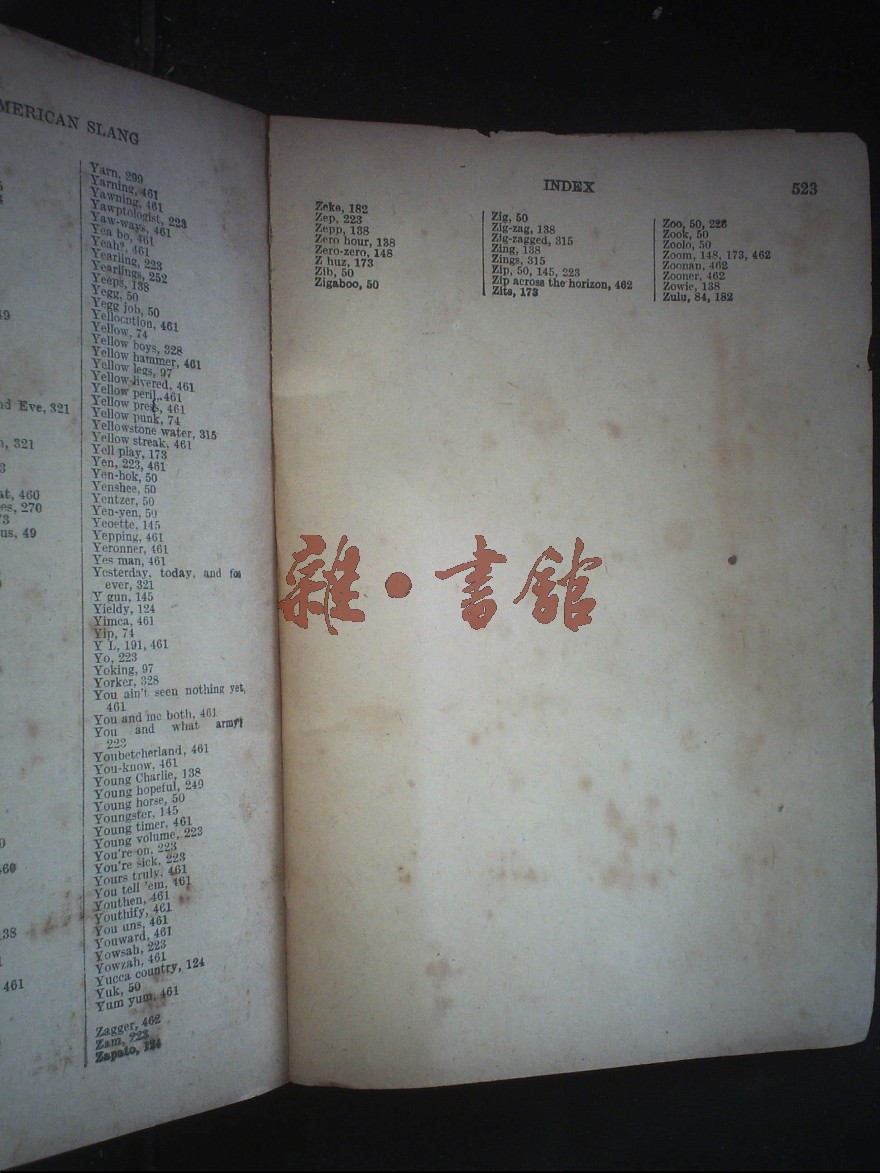 MERICAN SLANG
49
nd Eve, 321
321
at, 460
es, 270
us, 49
461
Yarn, 299
Yarning, 461
Yawning, 461
Yawptologist, 223
Yaw-ways, 461
Yea bo, 461
Yeah?, 461
Yearling, 223
Yearlings, 252
Yeeps, 138
Yegg, 50
Yegg job, 50
Yellocution, 461
Yellow, 74
Yellow boys, 328
Yellow hammer, 461
Yellow legs, 97
Yellow-livered, 461
Yellow peril, 461
Yellow press, 461
Yellow punk, 74
Yellowstone water, 315
Yellow streak, 461
Yell play, 173
Yen, 223, 461
Yen-hok, 50
Yenshee, 50
Yentzer, 50
Yen-yen, 50
Yeoette, 145
Yepping, 461
Yeronner, 461
Yes man, 461
Yesterday, today, and for
ever, 321
Y gun, 145
Yieldy, 124
Yimca, 461
Yip, 74
Y L, 191, 461
Yo, 223
Yoking, 97
Yorker, 328
You ain't seen nothing yet,
461
You and me both, 461
You and what army?
223
Youbetcherland, 461
You-know, 461
Young Charlie, 138
Young hopeful, 249
Young horse, 50
Youngster, 145
Young timer, 461
Young volume, 223
You're on, 223
You're sick, 223
Yours truly, 461
You tell 'em, 461
Youthen, 461
Youthify, 461
You uns, 461
Youward, 461
Yowsah, 223
Yowzah, 461
Yucca country, 124
Yuk, 50
Yum yum, 461
Zagger, 462
Zam, 223
Zapato, 124
INDEX 523
Zeke, 182
Zep, 223
Zepp, 138
Zero hour, 138
Zero-zero, 148
Z huz, 173
Zib, 50
Zigaboo, 50
Zig, 50
Zig-zag, 138
Zig-zagged, 315
Zing, 138
Zings, 315
Zip, 50, 145, 223
Zip across the horizon, 462
Zits, 173
Zoo, 50, 226
Zook, 50
Zoolo, 50
Zoom, 148, 173, 462
Zoonan, 462
Zooner, 462
Zowie, 138
Zulu, 84, 182
雜·書館